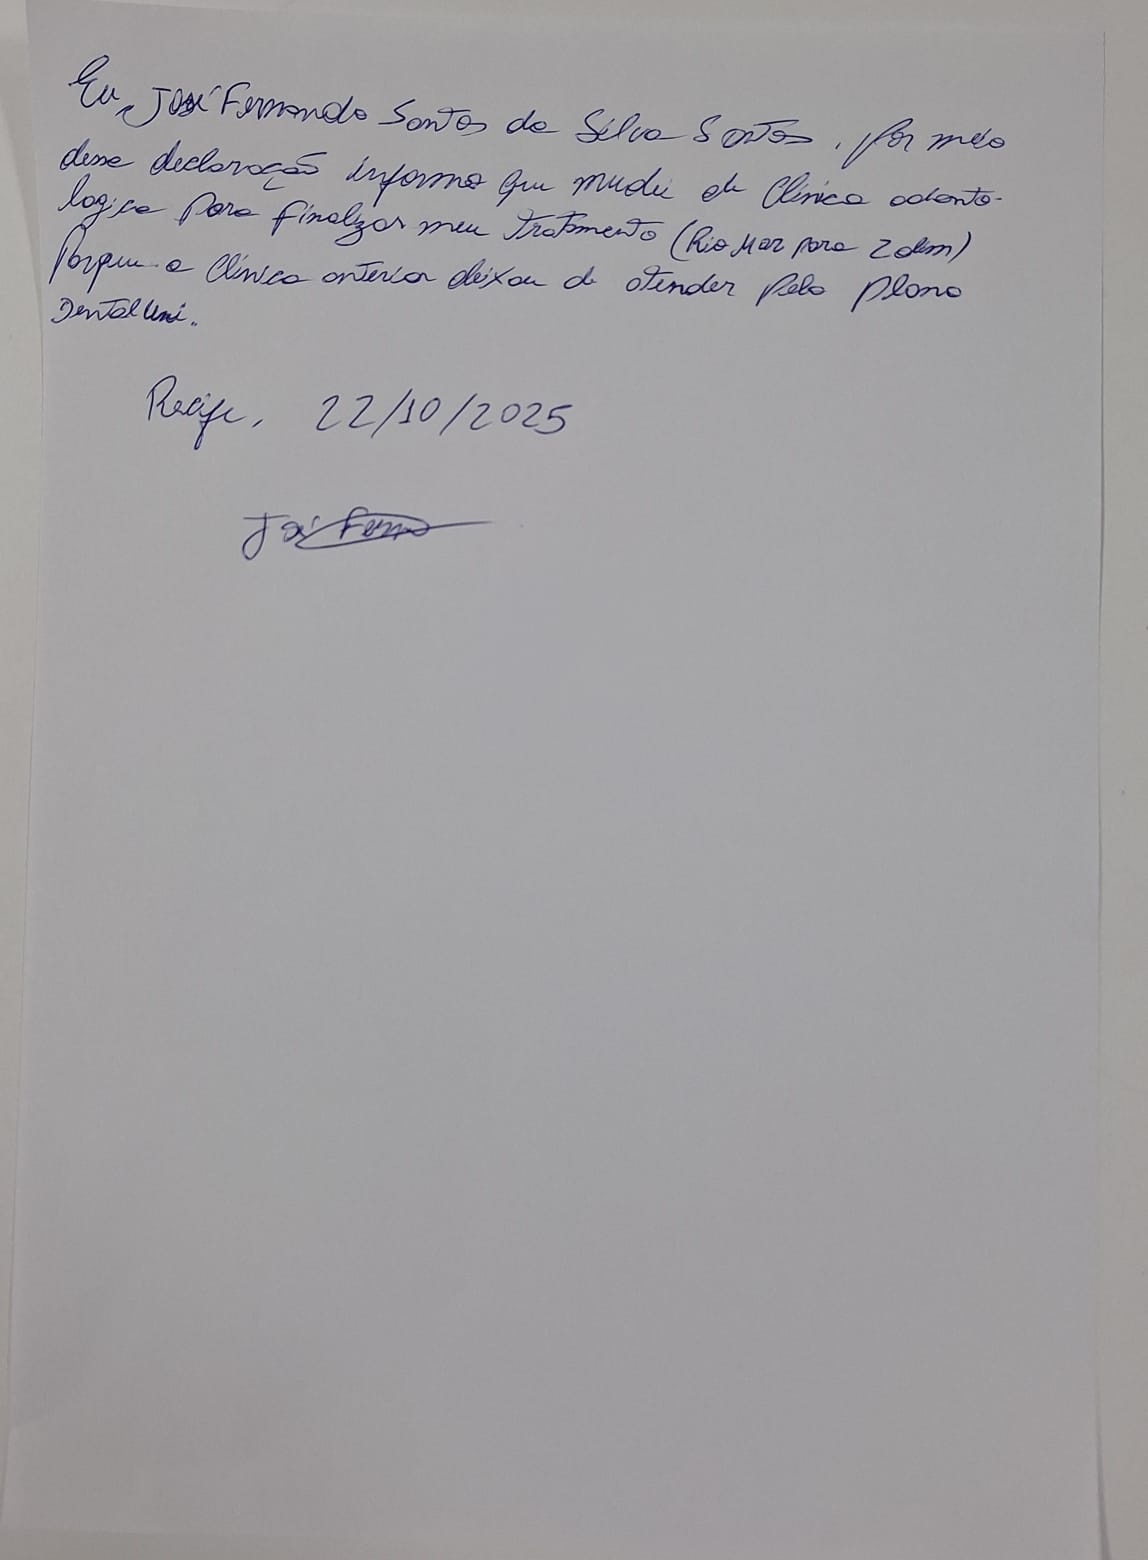 Eu, José Fernando Santos da Silva Santos, por meio
dessa declaração informo que mudei de Clínica odonto-
logica para finalizar meu tratamento (Rio Mar para Zolem)
Porque a Clínica anterior deixou de atender pelo plano
Dental Uni.
Recife, 22/10/2025
José Ferna